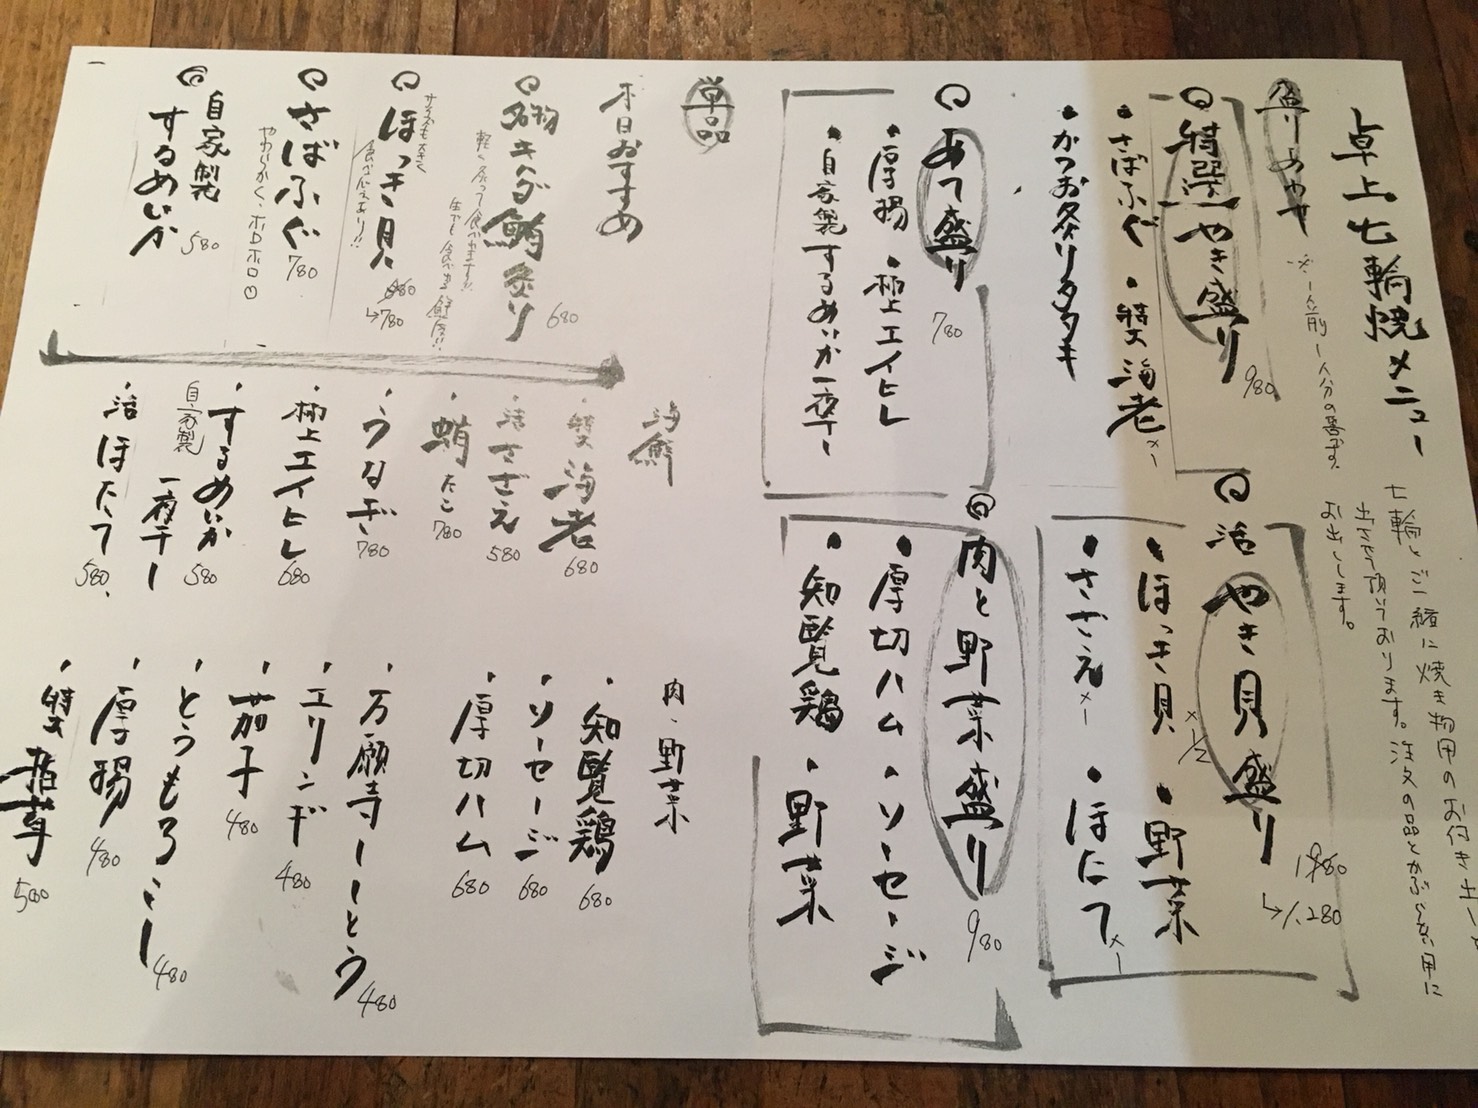 卓上七輪焼メニュー
七輪とご一緒に焼き物用のお付き出しを
出させて頂いております。注文の品とかぶらない用に
お出しします。
盛りあわせ
※一人前一人分の量です。
特選やき盛り 980
・さばふぐ ・特大海老×1
・かつお炙りタタキ
活やき貝盛り 1,280
・ほっき貝×1/2 ・野菜
・さざえ×1 ・ほたて×1
あて盛り 780
・厚揚 ・極上エイヒレ
・自家製するめいか一夜干し
肉と野菜盛り 980
・厚切ハム ・ソーセージ
・知覧鶏 ・野菜
単品
本日おすすめ
キハダ鮪炙り 680
軽く炙って食べれます!!
生でも食べれる鮮度!!
ほっき貝 →780
サイズも大きく
食べ応えあり!!
さばふぐ 780
やわらかく、ホロホロ
自家製
するめいか 580
海鮮
・特大海老 680
・活さざえ 580
・蛸たこ 780
・うなぎ 780
・極上エイヒレ 680
・するめいか 580
自家製 一夜干し
・活ほたて 580
肉・野菜
・知覧鶏 680
・ソーセージ 680
・厚切ハム 680
・万願寺しとう 480
・エリンギ 480
・茄子 480
・とうもろこし 480
・厚揚 480
・特大椎茸 580